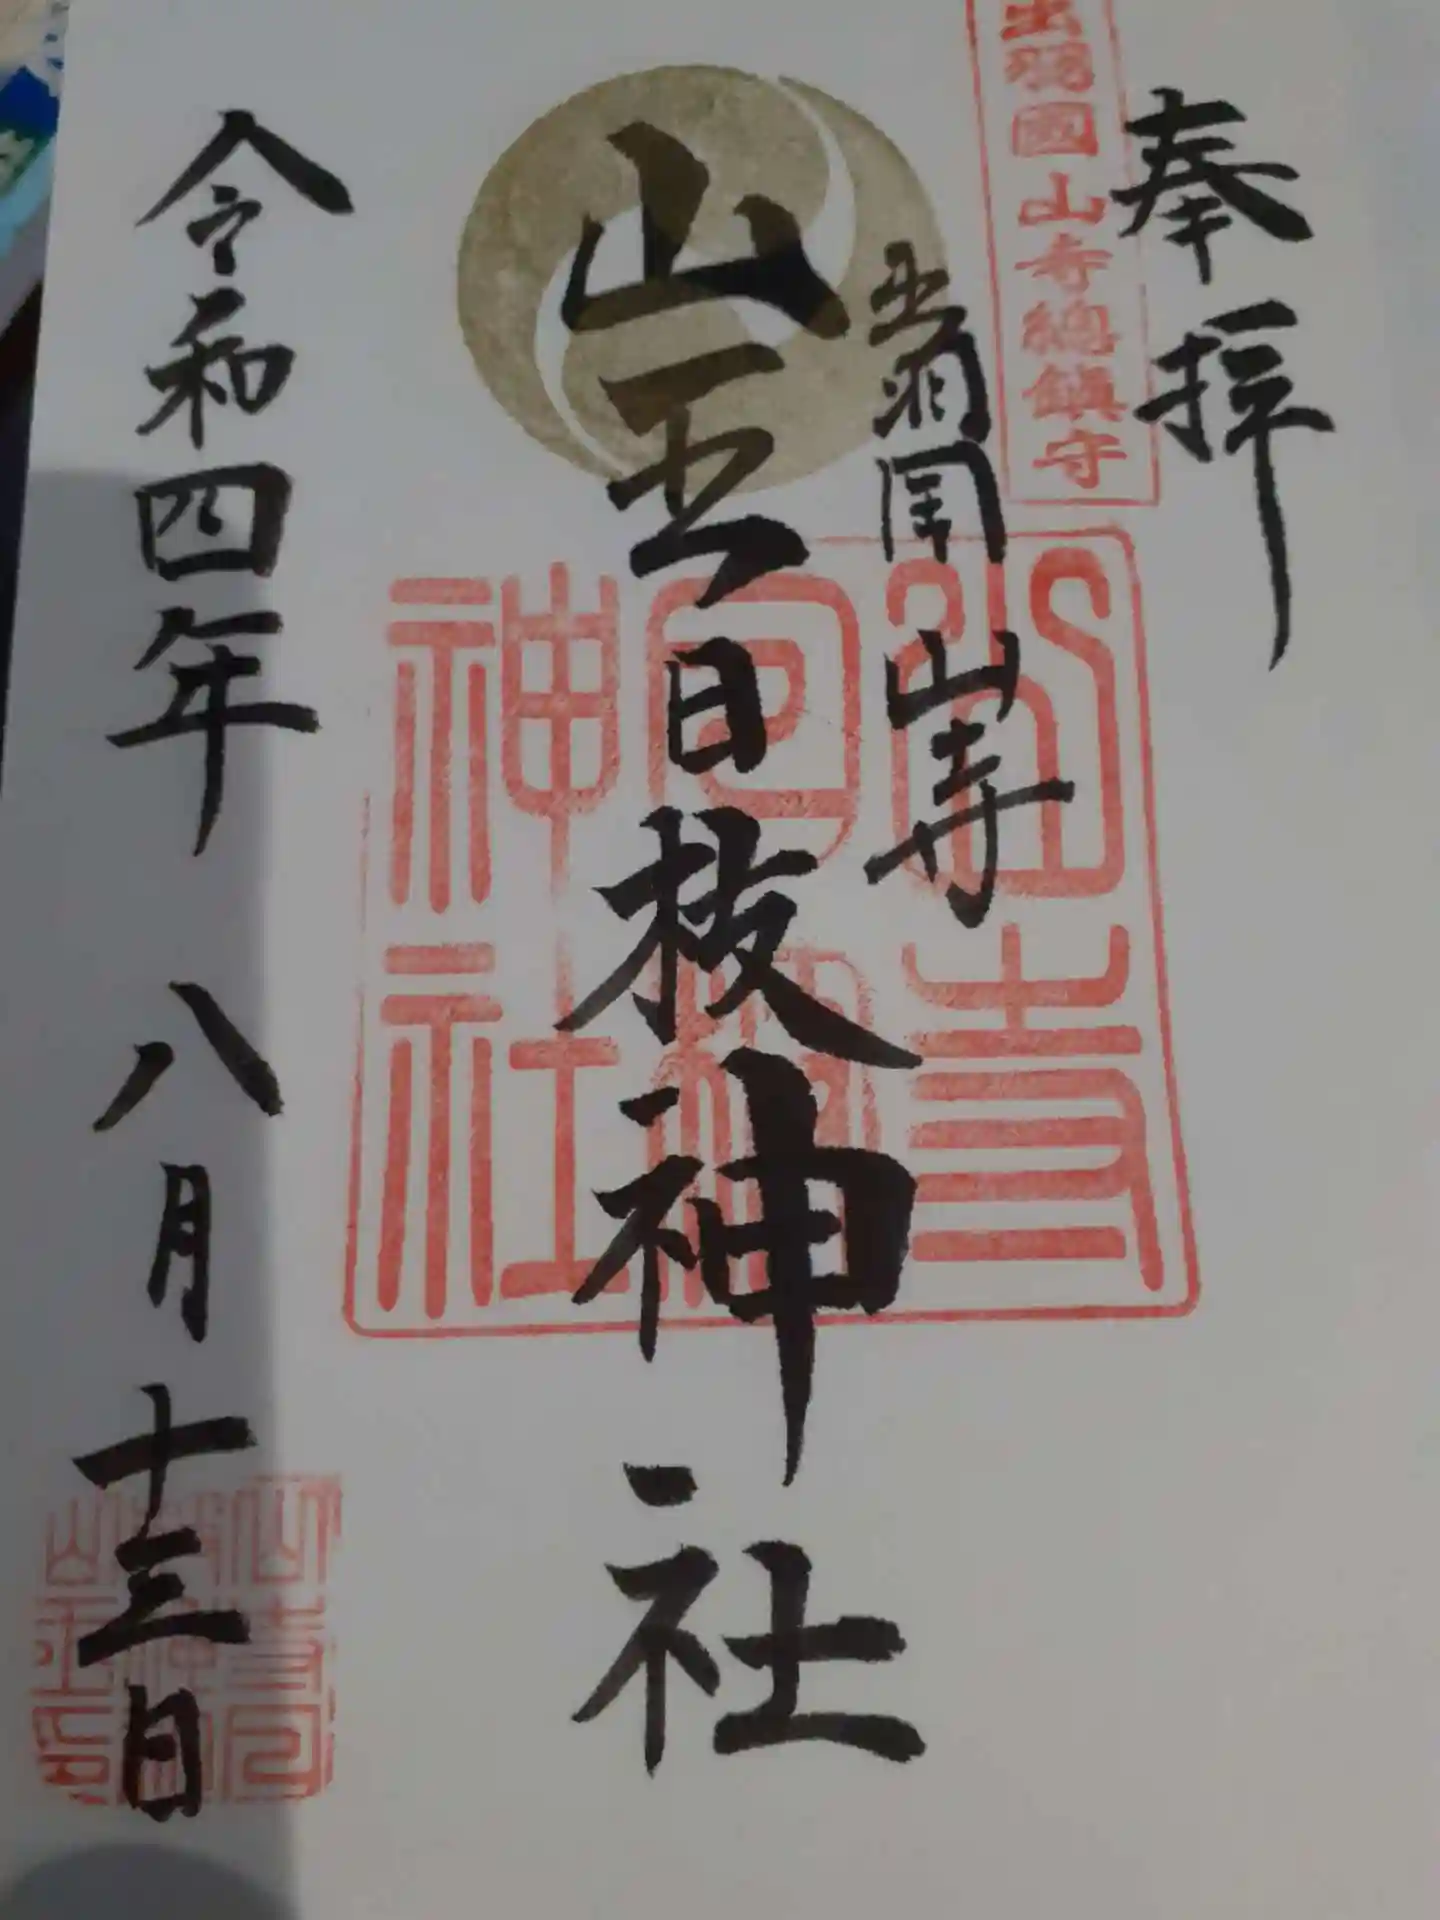 奉拝
出羽國 山寺總鎮守
出羽国 山寺
山王日枝神社
山寺日枝神社
令和四年 八月十三日